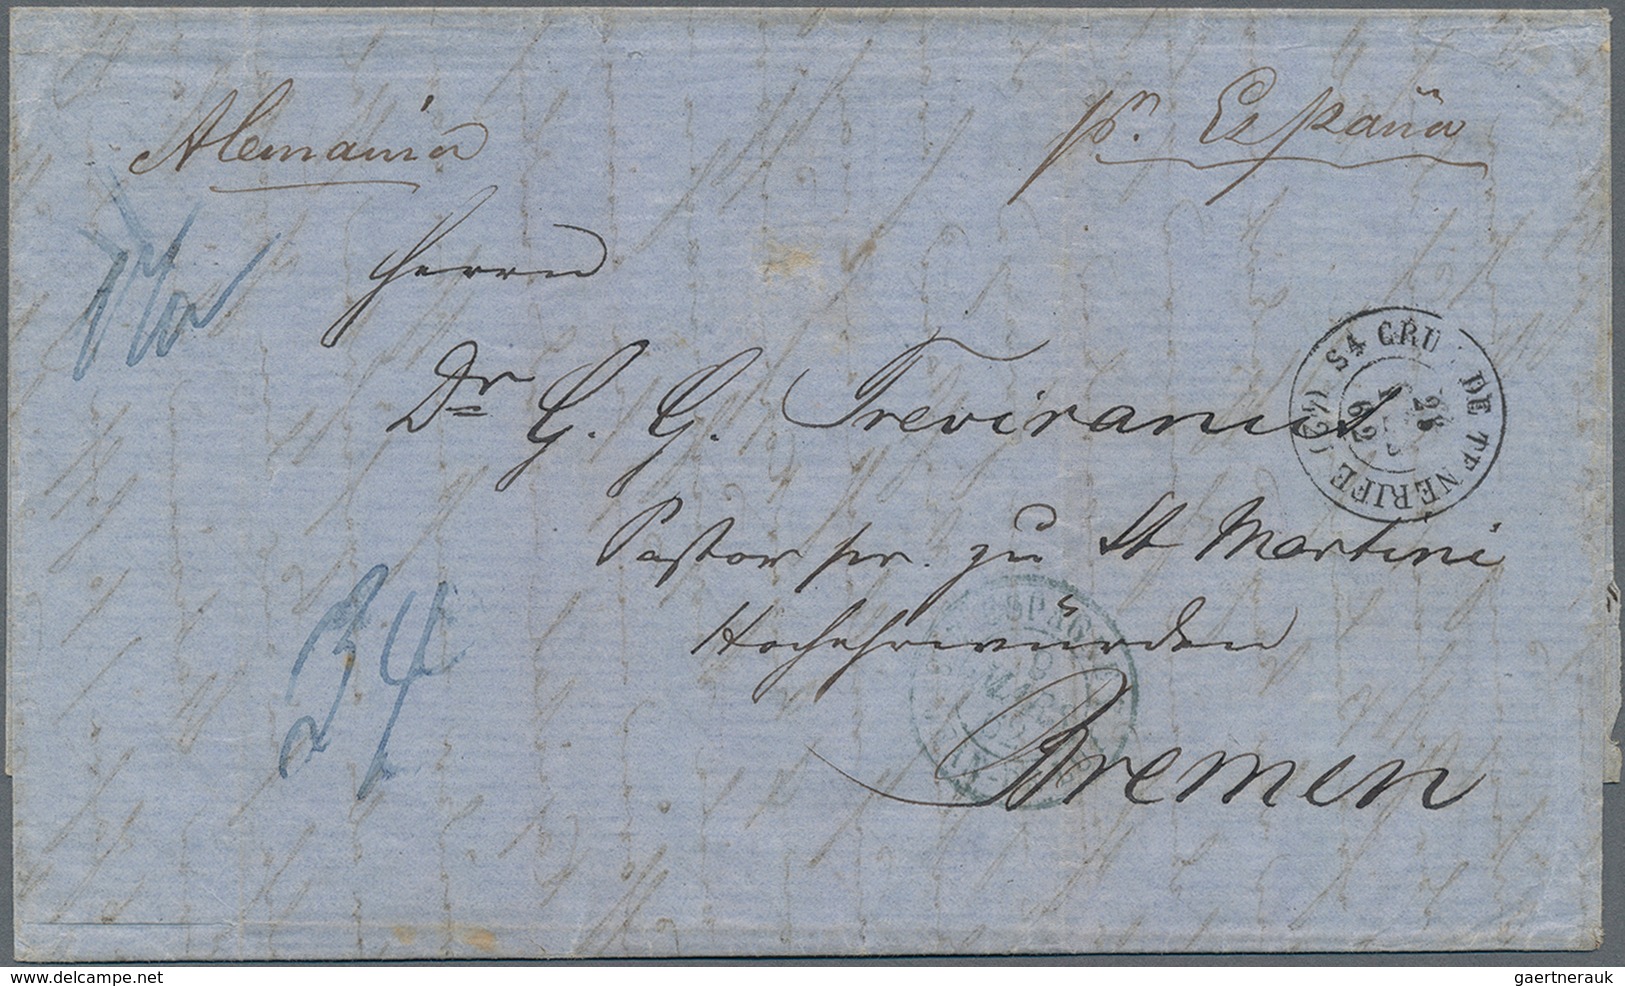 Alemania
pr. España
Herrn
Dr G. G. Treviranus
Pastor pr. zu St Martini
Hochehrwürden
Bremen
34
STA CRU DE TENERIFE (42)
26
62
ESPAGNE
8
MARS
delcampe.net
gaertnerauk